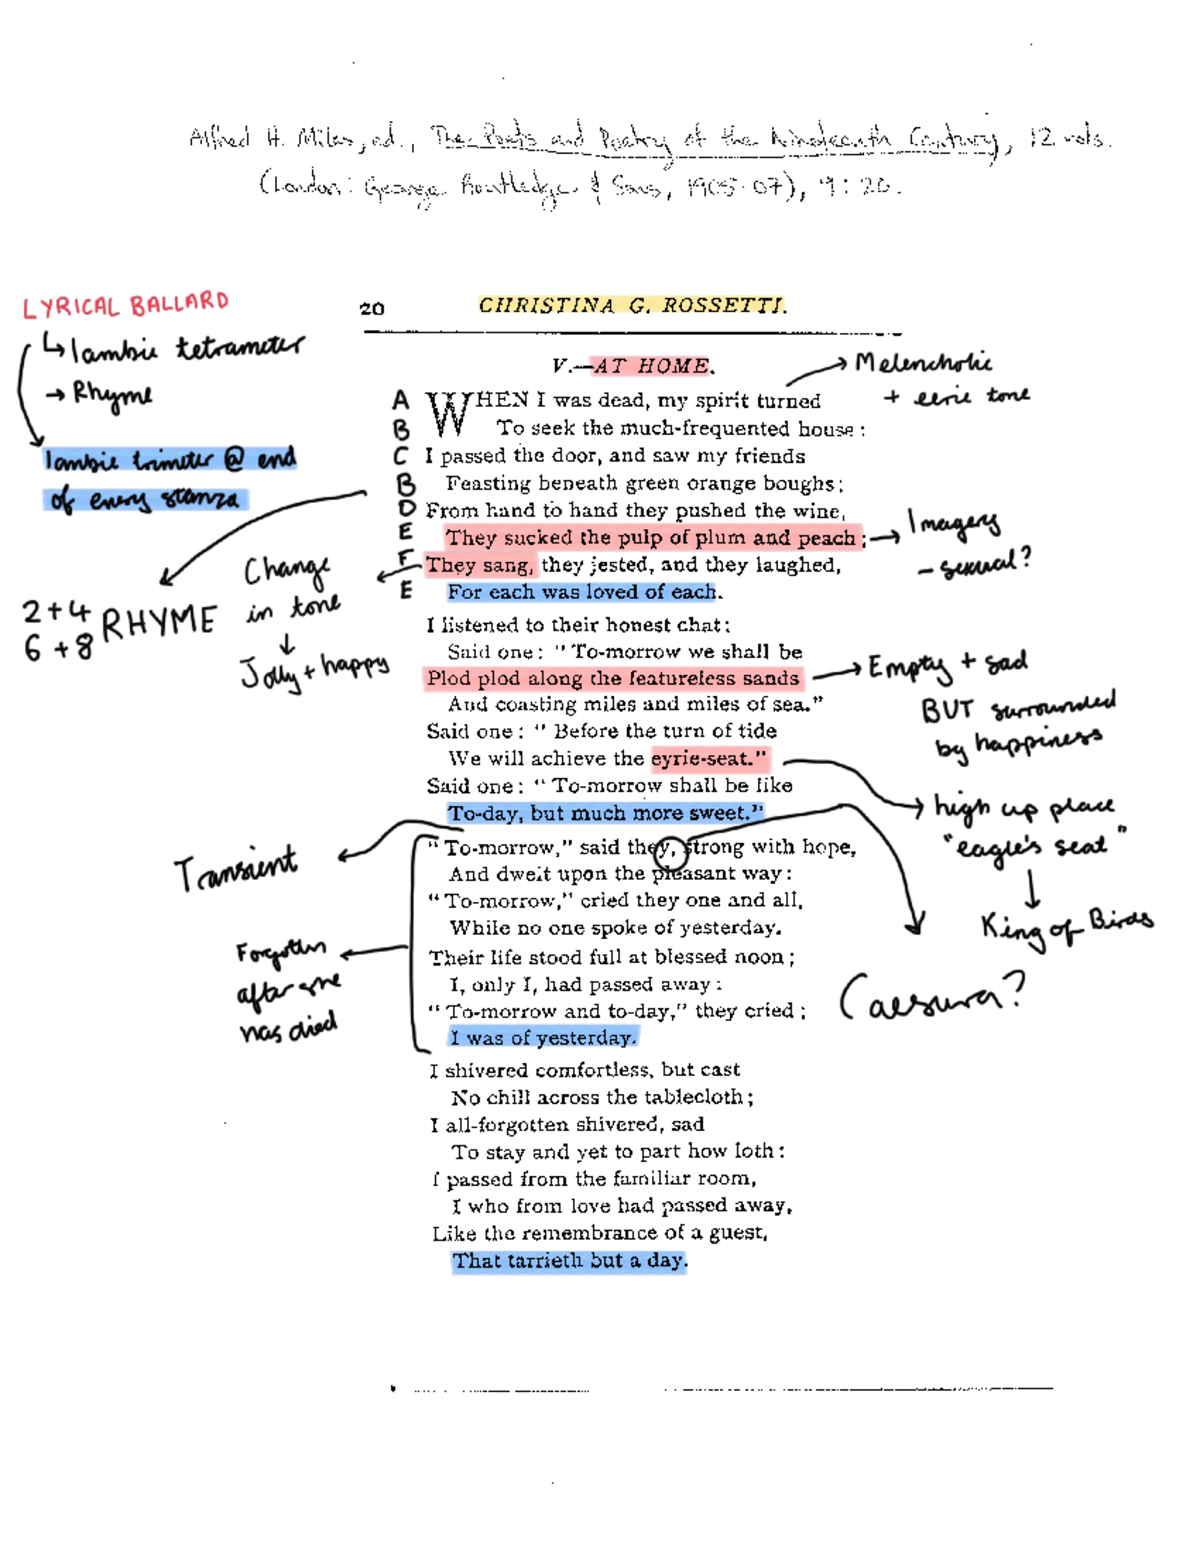 Alfred H. Miles, ed., The Poets and Poetry of the Nineteenth Century, 12 vols.
(London: George Routledge & Sons, 1905-07), 9:20.
LYRICAL BALLARD
↳ Iambic tetrameter
→ Rhyme
Iambic trimeter @ end
of every stanza
20 CHRISTINA G. ROSSETTI.
V.—AT HOME.
→ Melencholic
+ eerie tone
A WHEN I was dead, my spirit turned
B To seek the much-frequented house:
C I passed the door, and saw my friends
B Feasting beneath green orange boughs;
D From hand to hand they pushed the wine,
E They sucked the pulp of plum and peach;
F They sang, they jested, and they laughed,
E For each was loved of each.
→ Imagery
- sexual?
Change
in tone
↓
Jolly + happy
2+4
6+8 RHYME
I listened to their honest chat:
Said one: "To-morrow we shall be
Plod plod along the featureless sands
And coasting miles and miles of sea."
Said one: "Before the turn of tide
We will achieve the eyrie-seat."
Said one: "To-morrow shall be like
To-day, but much more sweet."
→ Empty + sad
BUT surrounded
by happiness
→ high up place
"eagle's seat"
↓
King of Birds
Transient
"To-morrow," said they, strong with hope,
And dwelt upon the pleasant way:
"To-morrow," cried they one and all,
While no one spoke of yesterday.
Their life stood full at blessed noon;
I, only I, had passed away:
"To-morrow and to-day," they cried;
I was of yesterday.
Forgotten
after one
has died
Caesura?
I shivered comfortless, but cast
No chill across the tablecloth;
I all-forgotten shivered, sad
To stay and yet to part how loth:
I passed from the familiar room,
I who from love had passed away,
Like the remembrance of a guest,
That tarrieth but a day.